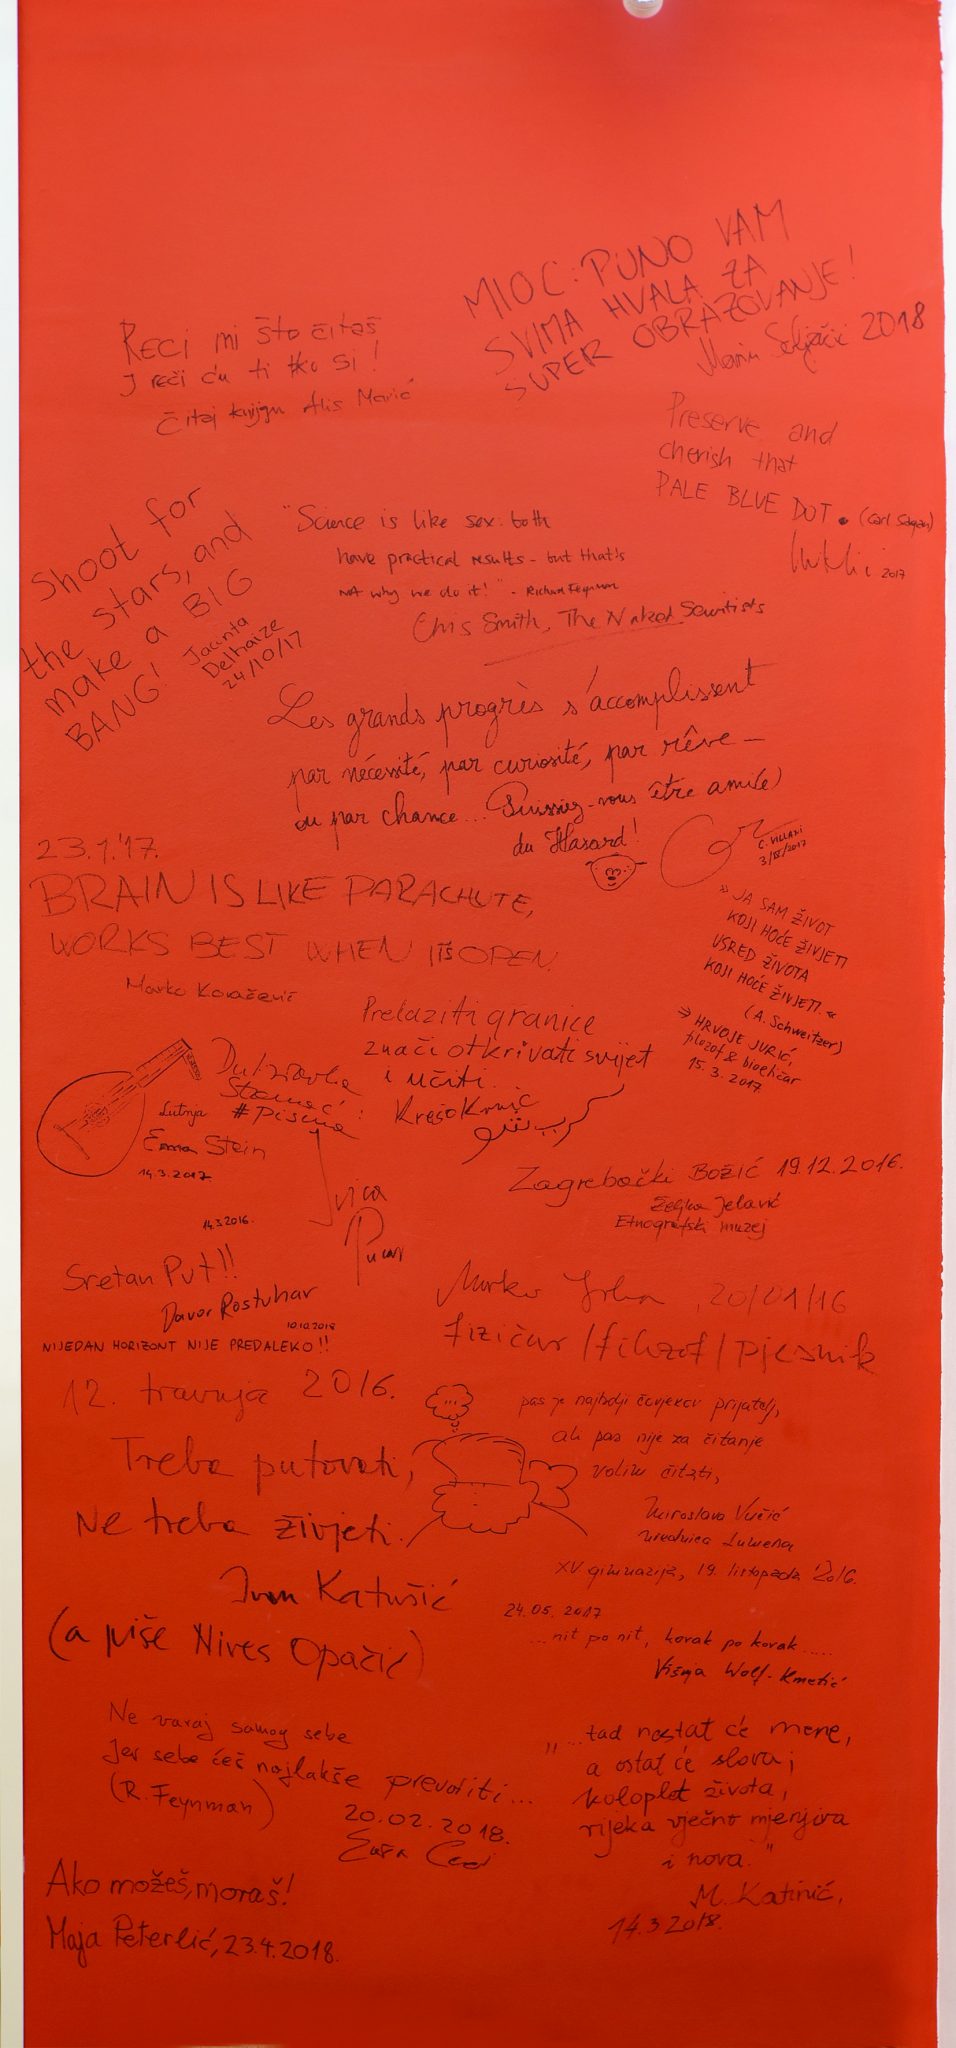 MIOC: PUNO VAM
SVIMA HVALA ZA
SUPER OBRAZOVANJE!
Marin Soljačić 2018
RECI mi što čitaš
I reći ću ti tko si!
Čitaj knjigu Alis Marić
Preserve and
cherish that
PALE BLUE DOT. (Carl Sagan)
2017
Shoot for
the stars, and
make a BIG
BANG!
Jacinta
Delhaize
24/10/17
"Science is like sex: both
have practical results - but that's
not why we do it!" - Richard Feynman
Chris Smith, The Naked Scientists
Les grands progrès s'accomplissent
par nécessité, par curiosité, par rêve –
ou par chance... Puissiez-vous être ami(e)
du Hasard!
C. VILLANI
3/IV/2017
23.1.'17.
BRAIN IS LIKE PARACHUTE,
WORKS BEST WHEN ITS OPEN.
Marko Kovačević
» JA SAM ŽIVOT
KOJI HOĆE ŽIVJETI
USRED ŽIVOTA
KOJI HOĆE ŽIVJETI. «
(A. Schweitzer)
HRVOJE JURIĆ,
filozof & bioetičar
15. 3. 2017.
Prelaziti granice
znači otkrivati svijet
i učiti.
Krešo
Dubravka
#pisma
Lutnja
Emma Stein
14.3.2017
14.3.2016.
Ivica
Zagrebački Božić 19.12.2016.
Željka Jelavić
Etnografski muzej
Sretan Put!!
Davor Rostuhar
10.10.2018
NIJEDAN HORIZONT NIJE PREDALEKO!!
Mirko 20/01/16
fizičar/filozof/pjesnik
12. travnja 2016.
Treba putovati,
Ne treba živjeti.
Ivan Katušić
(a piše Nives Opačić)
...
pas je najbolji čovjekov prijatelj,
ali pas nije za čitanje
volim čitati,
Miroslava Vučić
urednica Lumena
XV gimnazija, 19. listopada 2016.
24.05.2017
...nit po nit, korak po korak.....
Višnja Wolf-Kmetić
Ne varaj samog sebe
Jer sebe ćeš najlakše prevariti...
(R. Feynman)
20.02.2018.
„...tad nestat će mene,
a ostat će slova;
koloplet života,
rijeka vječno mjenjiva
i nova."
M. Katinić,
14.3.2018.
Ako možeš, moraš!
Maja Peterlić, 23.4.2018.